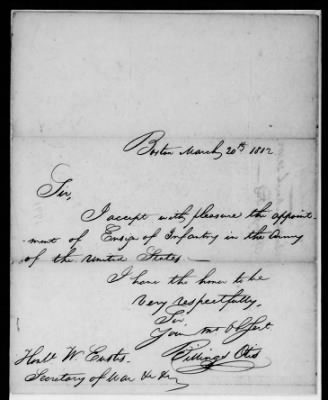 Boston March 20th 1812
Sir,
I accept with pleasure the appoint-
ment of Ensign of Infantry in the Army
of the United States —
I have the honor to be
very respectfully,
Sir
Your mt Obt Sert
Billings Otis
Honle W Eustis
Secretary of War &c &c